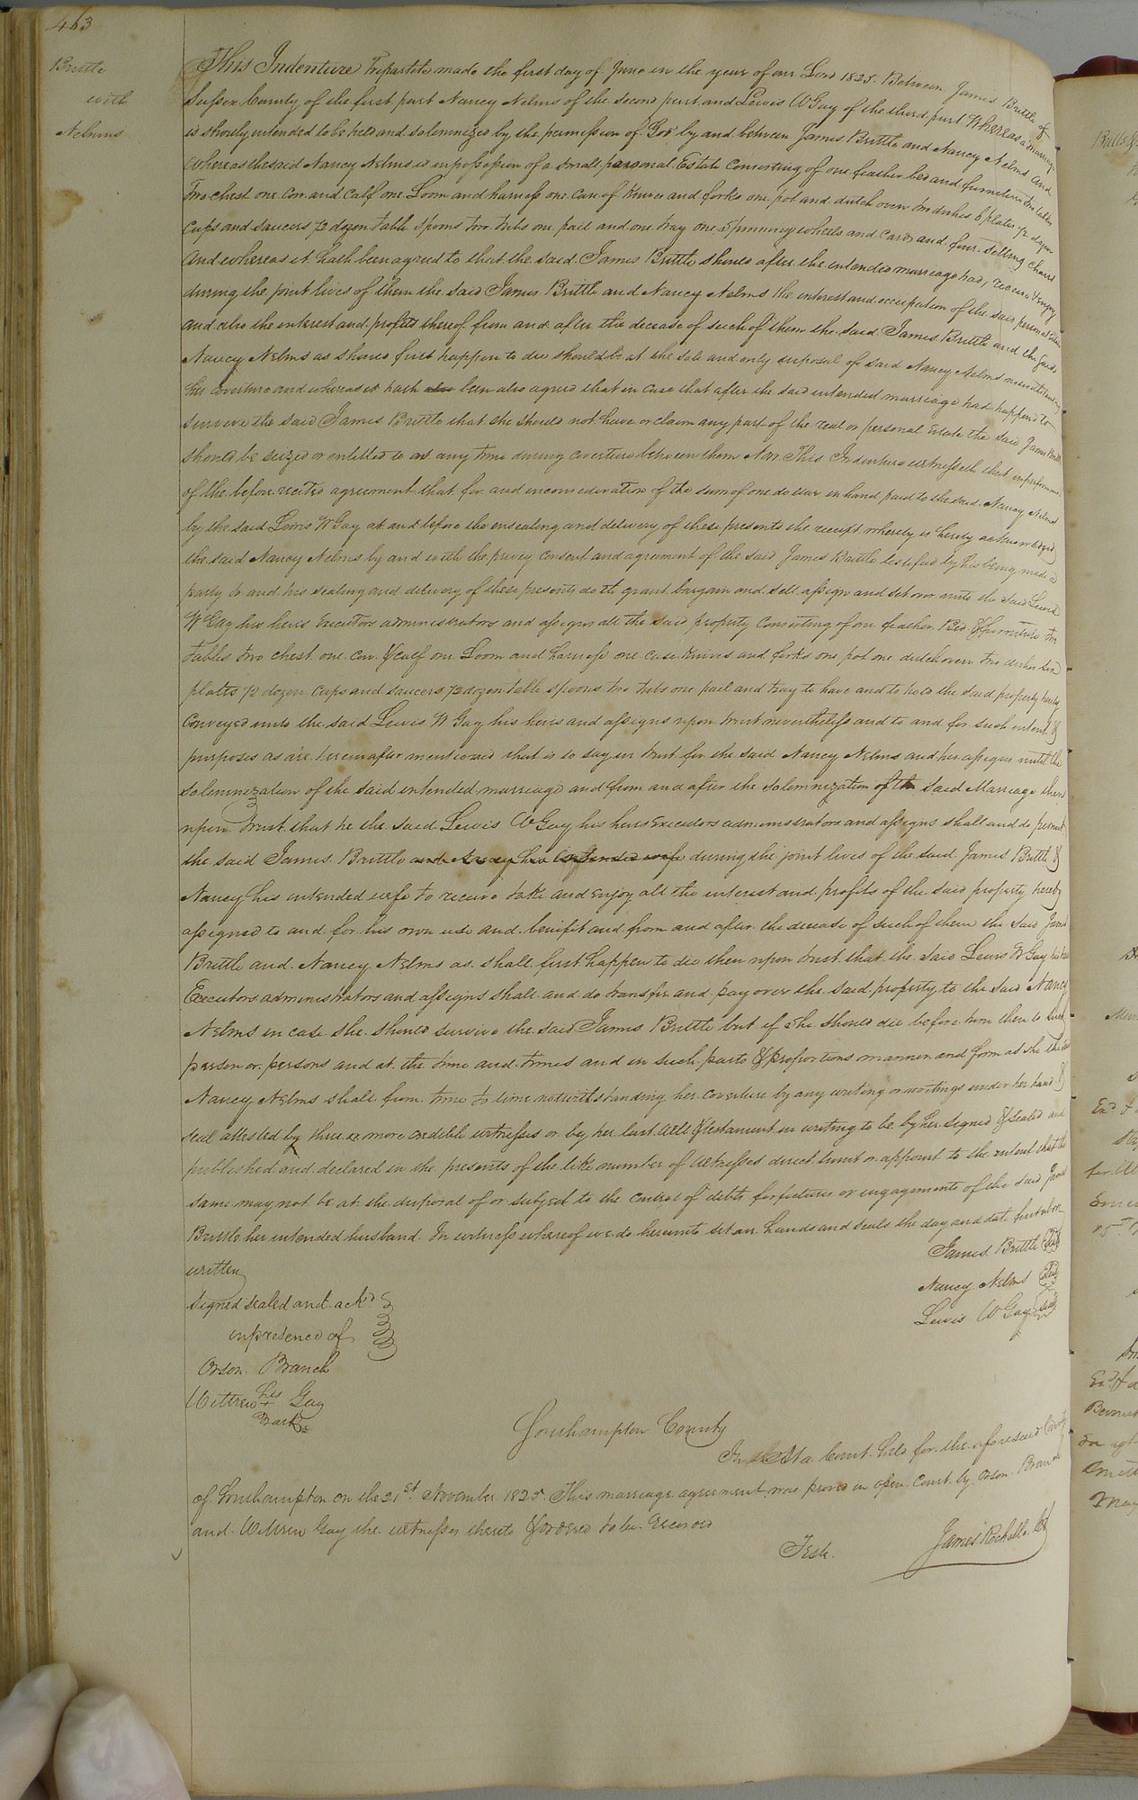 463
Brittle
with
Nelmns
This Indenture Tripartite made the first day of June in the year of our Lord 1825. Between James Brittle of
Sussex County of the first part Nancy Nelms of the Second part, and Lewis W Gay of the third part Whereas a marriage
is shortly intended to be held and solemnized by the permission of God by and between James Brittle and Nancy Nelms and
Whereas the said Nancy Nelms is in possession of a Small personal Estate Consisting of one feather bed and furniture two tables
two chest one Cow and Calf one Loom and harness one Case of Knives and forks one pot and dutch oven two dishes 6 plates 1/2 dozen
Cups and saucers 1/2 dozen table Spoons two tubs one pail and one tray one Spinning wheels and Cards and four sitting chairs
And whereas it hath been agreed to that the said James Brittle should after the intended marriage had, receive & enjoy
during the joint lives of them the said James Brittle and Nancy Nelms the interest and occupation of the said personal Estate
and also the interest and profits thereof from and after the decease of such of them the said James Brittle and the said
Nancy Nelms as should first happen to die should be at the sole and only disposal of said Nancy Nelms notwithstanding
her coverture and whereas it hath also been also agreed that in case that after the said intended marriage had happen to
survive the said James Brittle that she should not have or claim any part of the real or personal Estate the said James Brittle
should be seized or entitled to at any time during coverture between them Now This Indenture witnesseth that in performance
of the before recited agreement that for and in consideration of the sum of one dollar in hand paid to the said Nancy Nelms
by the said Lewis W Gay at and before the ensealing and delivery of these presents the receipt whereby is hereby acknowledged
the said Nancy Nelms by and with the privey Consent and agreement of the said James Brittle testified by his being made a
party to and his sealing and delivery of these presents doth grant bargain and sell assign and set over unto the said Lewis
W Gay his heirs Executors administrators and assigns all the said property Consisting of one feather Bed & furniture two
tables two chest one Cow & Calf one Loom and harness one case Knives and forks one pot one dutch oven two dishes six
platts 1/2 dozen Cups and saucers 1/2 dozen table spoons two tubs one pail and tray to have and to hold the said property hereby
Conveyed unto the said Lewis W Gay his heirs and assigns upon trust nevertheless and to and for such intent &
purposes as are hereinafter mentioned that is to say in trust for the said Nancy Nelms and her assigns until the
solemnization of the said intended marriage and from and after the solemnization of the said Marriage then
upon trust that he the said Lewis W Gay his heirs Executors administrators and assigns shall and do permit
the said James Brittle and Nancy his intended wife during the joint lives of the said James Brittle &
Nancy his intended wife to receive take and enjoy all the interest and profits of the said property hereby
assigned to and for his own use and benifit and from and after the decease of such of them the said James
Brittle and Nancy Nelms as shall first happen to die then upon trust that the said Lewis W Gay his heirs
Executors administrators and assigns shall and do transfer and pay over the said property to the said Nancy
Nelms in case she should survive the said James Brittle but if She should die before him then to such
person or persons and at the time and times and in such parts & proportions manner and form as she the said
Nancy Nelms shall from time to time notwithstanding her coverture by any writing or writings under her hand &
seal attested by three or more credible witnesses or by her last Will & testament in writing to be by her signed & sealed and
published and declared in the presents of the like number of Witnesses direct limit or appoint to the intent that the
same may not be at the disposal of or subject to the control of debts forfeitures or engagements of the said James
Brittle her intended husband. In witness whereof we do hereunto set our hands and seals the day and date first above
written
James Brittle seal
Nancy Nelms seal
Lewis W Gay seal
Signed sealed and ackd
in presence of
Orson Branch
Wittrew his Gay
+
Mark
Southampton County
In At a Court held for the aforesaid County
of Southampton on the 21st November 1825. This marriage agreement was proved in open Court by Orson Branch
and Wittrew Gay the witnesses thereto & Ordered to be Recorded
Teste.
James Rochelle Ck